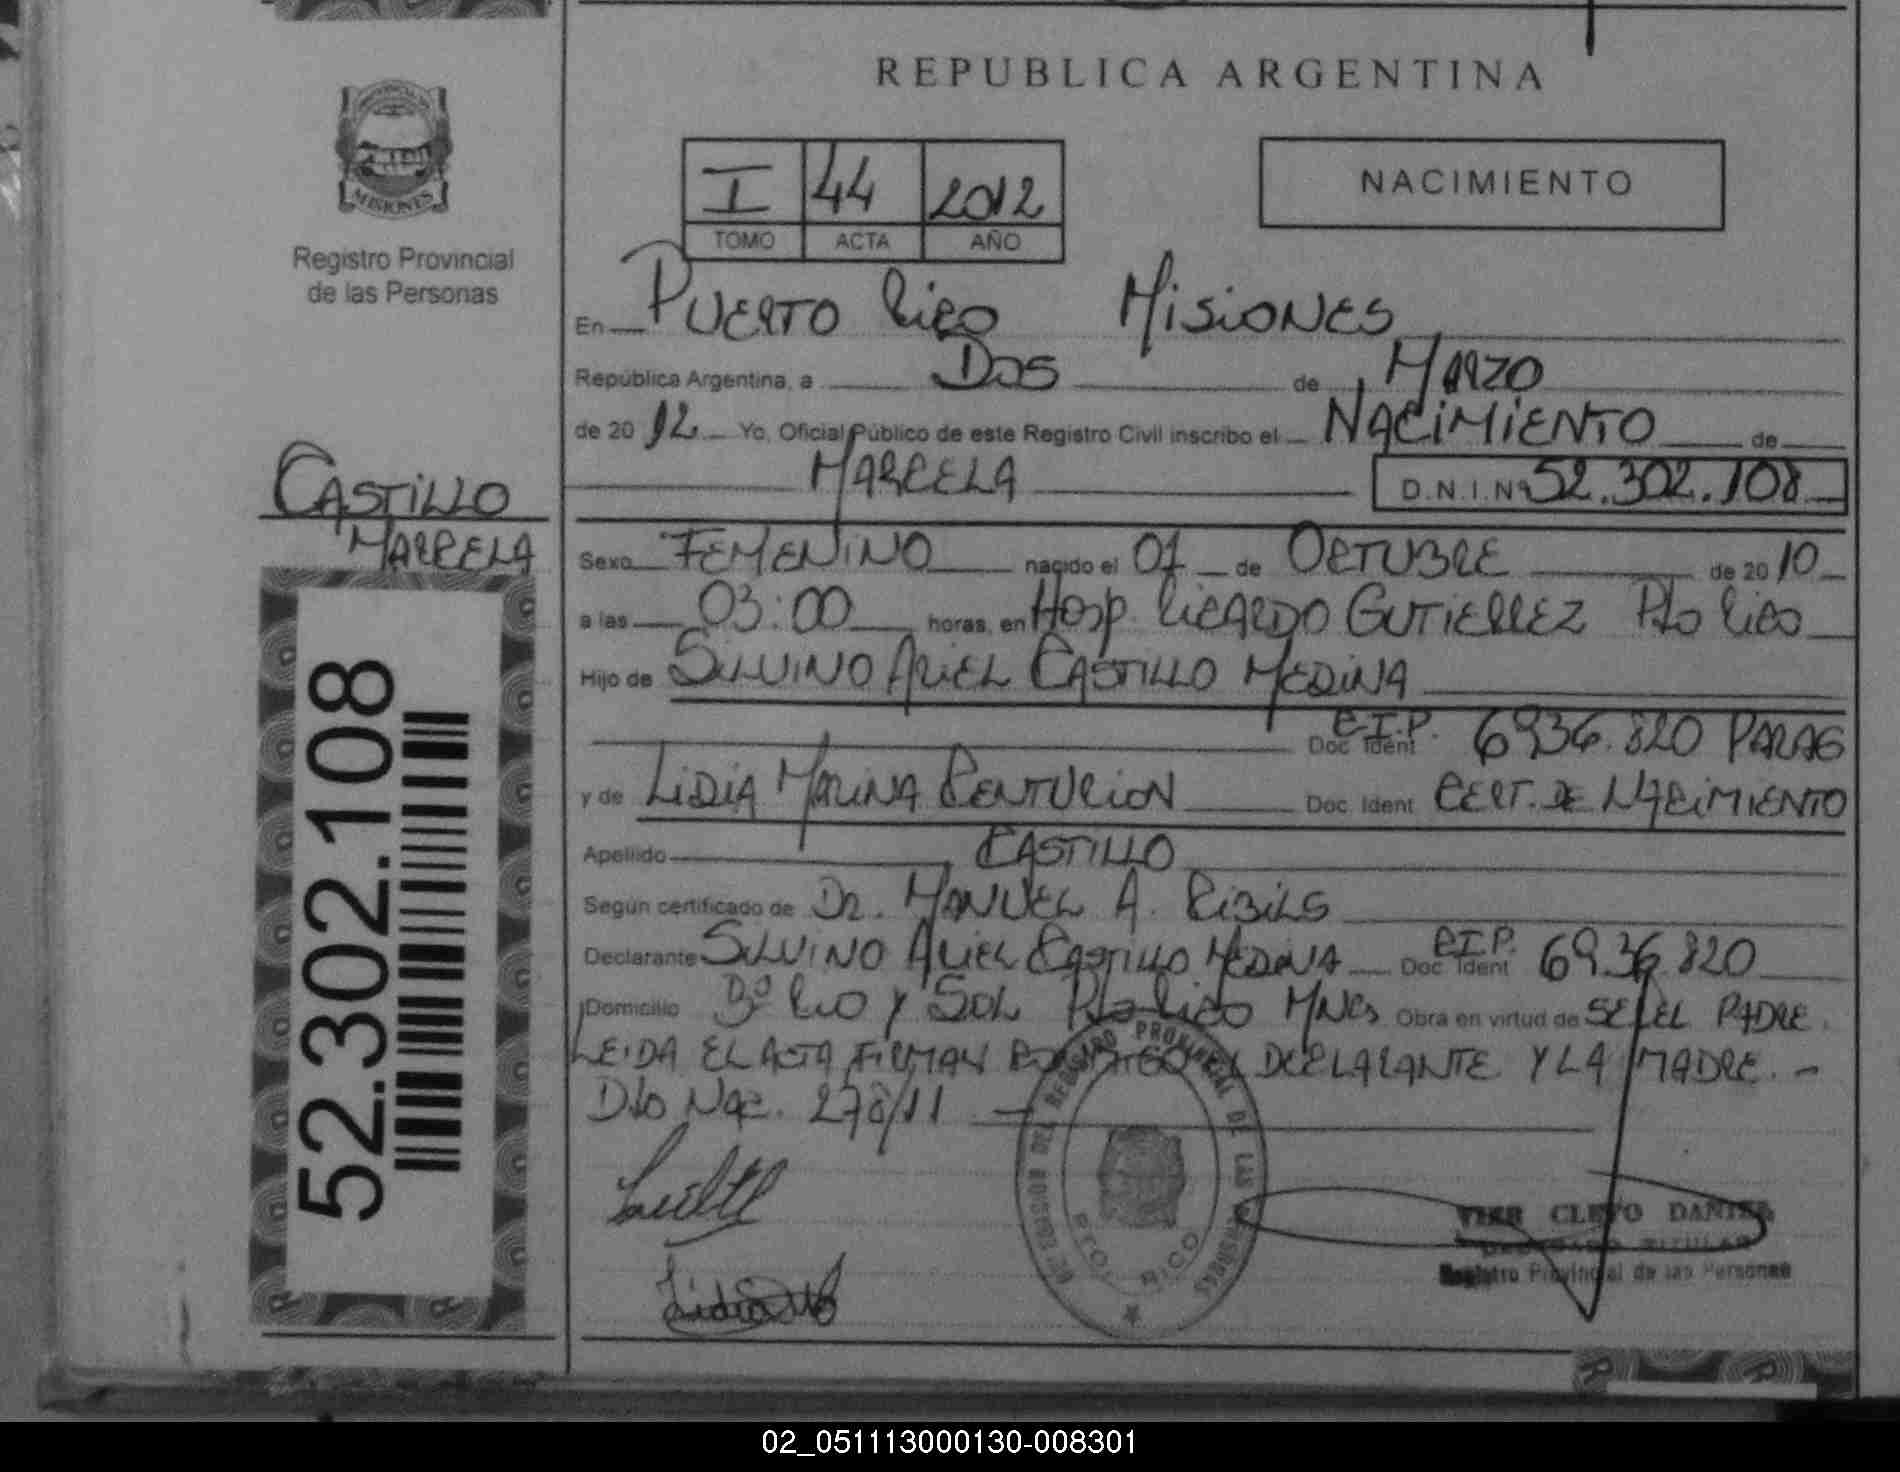 REPUBLICA ARGENTINA
MISIONES
Registro Provincial
de las Personas
I 44 2012
TOMO ACTA AÑO
NACIMIENTO
En PUERTO RICO MISIONES
República Argentina, a DOS de MARZO
de 2012 Yo, Oficial Público de este Registro Civil inscribo el NACIMIENTO de
MARCELA D.N.I.Nº 52.302.108
CASTILLO
MARCELA
Sexo FEMENINO nacido el 01 de OCTUBRE de 2010
a las 03:00 horas, en Hosp. RICARDO GUTIERREZ Pto RICO
Hijo de SILVINO ARIEL CASTILLO MEDINA
Doc Ident C.I.P. 6936.820 PARAG
y de LIDIA MARINA CENTURION Doc Ident CERT. DE NACIMIENTO
Apellido CASTILLO
Según certificado de DR. MANUEL A.
Declarante SILVINO ARIEL CASTILLO MEDINA Doc Ident C.I.P. 6936.820
Domicilio Bº RIO Y SOL Pto RICO MNES Obra en virtud de SER EL PADRE.
LEIDA EL ACTA FIRMAN CONMIGO EL DECLARANTE Y LA MADRE. -
Dto Nac. 278/11 -
52.302.108
REGISTRO PROVINCIAL DE LAS PERSONAS
PTO. RICO
CLETO DANIEL
TITULAR
Registro Provincial de las Personas
02_051113000130-008301